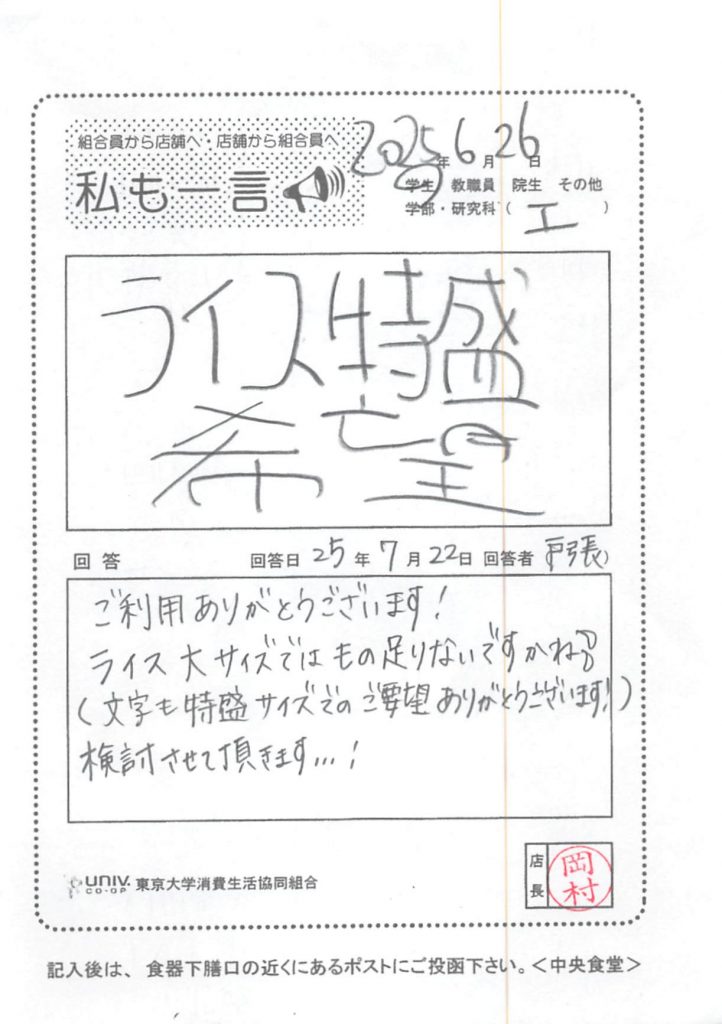 組合員から店舗へ・店舗から組合員へ
私も一言
2025年6月26日
学生 教職員 院生 その他
学部・研究科(工)
ライス特盛
希望
回答 回答日 25年7月22日 回答者 戸張)
ご利用ありがとうございます!
ライス大サイズではもの足りないですかね?
(文字も特盛サイズでのご要望ありがとうございます!)
検討させて頂きます…!
UNIV. CO-OP 東京大学消費生活協同組合
店長 岡村
記入後は、食器下膳口の近くにあるポストにご投函下さい。<中央食堂>